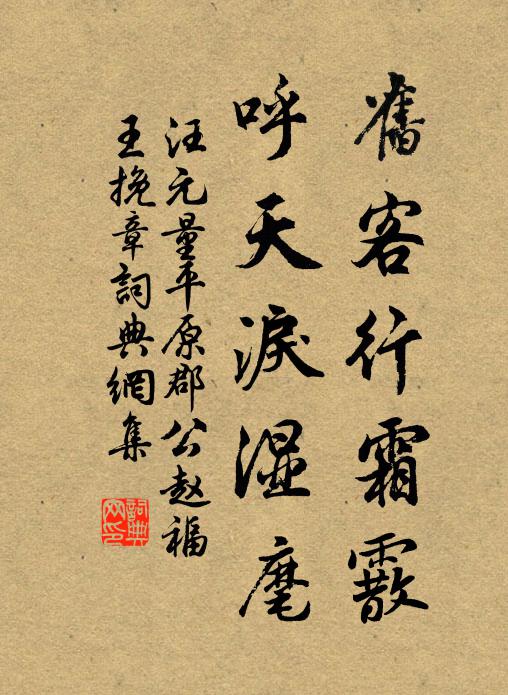 舊客行霜霰
呼天淚湿麾
汪元量平原郡公赵福
王挽章詞典網集
詞典网印